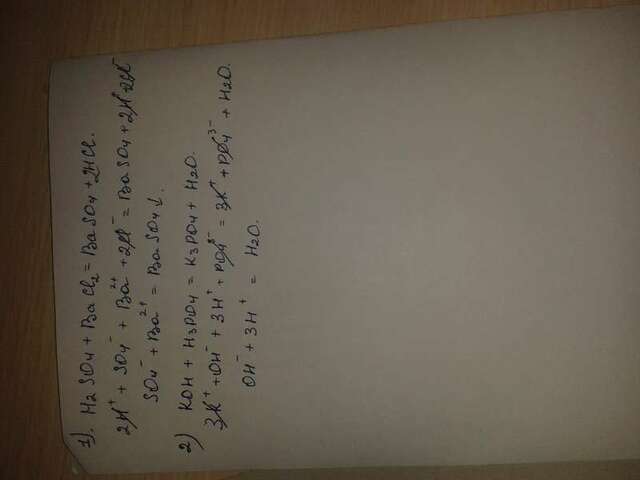 1). H2SO4 + BaCl2 = BaSO4 + 2HCl.
2H⁺ + SO4⁻ + Ba²⁺ + 2Cl⁻ = BaSO4 + 2H⁺ 2Cl⁻
SO4⁻ + Ba²⁺ = BaSO4↓.
2) KOH + H3PO4 = K3PO4 + H2O.
3K⁺ + OH⁻ + 3H⁺ + PO4³⁻ = 3K⁺ + PO4³⁻ + H2O.
OH⁻ + 3H⁺ = H2O.